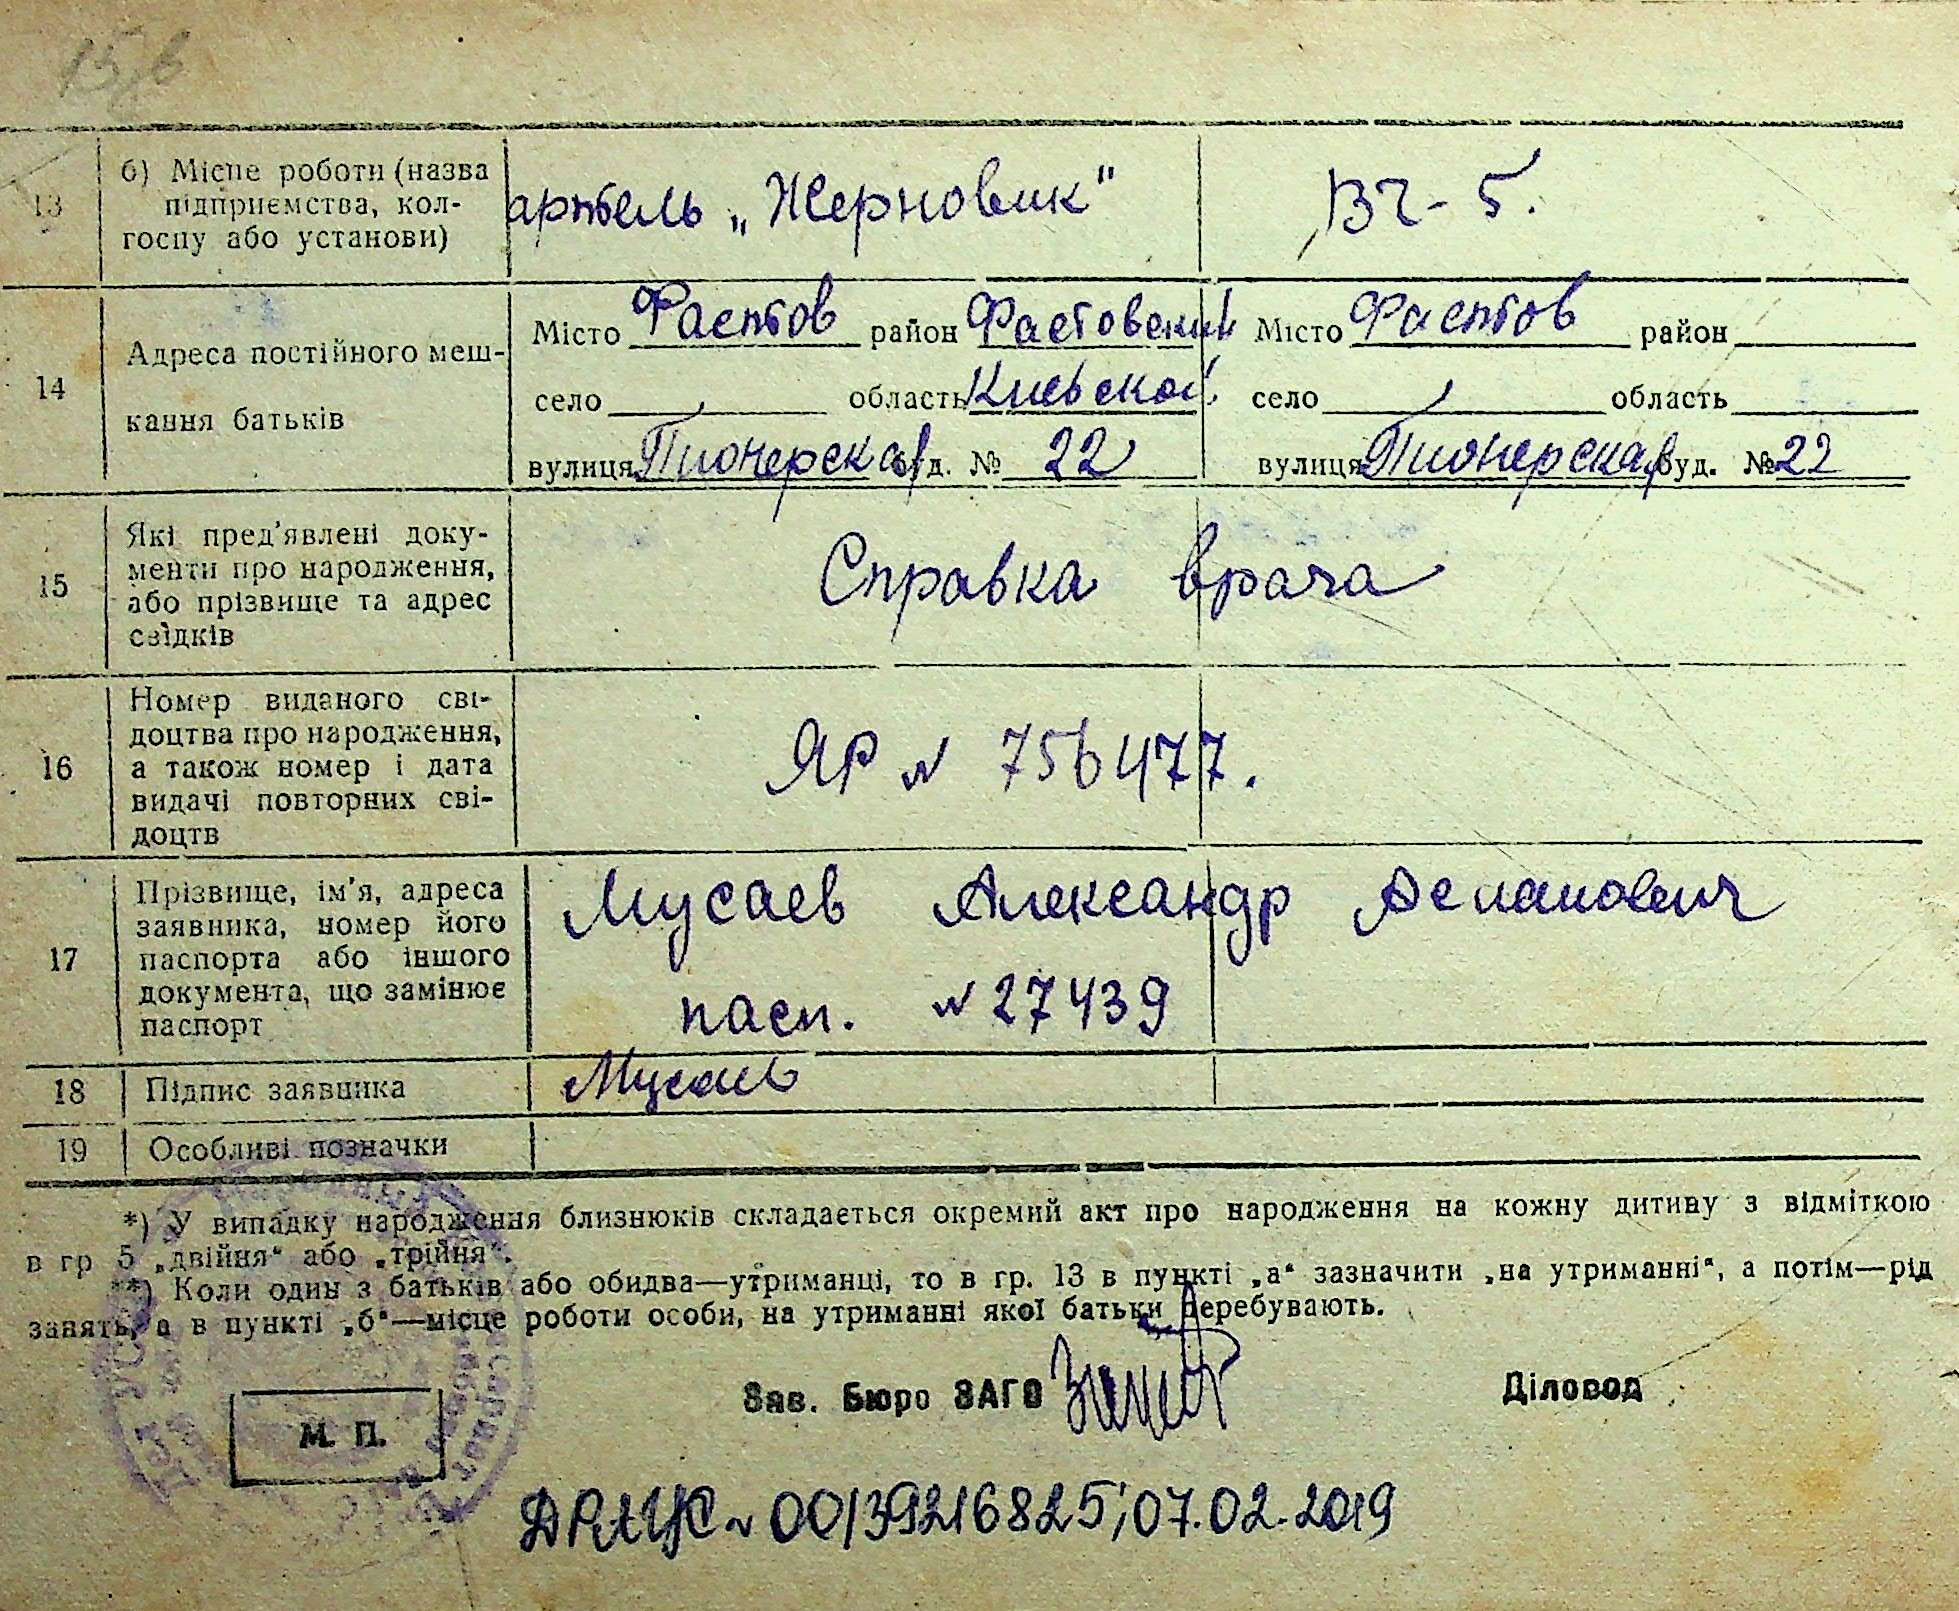 13
б) Місце роботи (назва
підприємства, кол-
госпу або установи)
артель „Жерновик"
ВЧ - 5.
14
Адреса постійного меш-
кання батьків
Місто Фастов район Фастовский
село область Киевской
вулиця Пионерская буд. № 22
Місто Фастов район
село область
вулиця Пионерская буд. № 22
15
Які пред'явлені доку-
менти про народження,
або прізвище та адрес
свідків
Справка врача
16
Номер виданого сві-
доцтва про народження,
а також номер і дата
видачі повторних сві-
доцтв
ЯР № 756477.
17
Прізвище, ім'я, адреса
заявника, номер його
паспорта або іншого
документа, що замінює
паспорт
Мусаев Александр
пасп. № 27439
18
Підпис заявника
Мусаев
19
Особливі позначки
*) У випадку народження близнюків складається окремий акт про народження на кожну дитину з відміткою
в гр 5 „двійня" або „трійня".
**) Коли один з батьків або обидва—утриманці, то в гр. 13 в пункті „а" зазначити „на утриманні", а потім—рід
занять, а в пункті „б"—місце роботи особи, на утриманні якої батьки перебувають.
Зав. Бюро ЗАГС
Діловод
М. П.
ДРАЦС № 00139216825; 07.02.2019